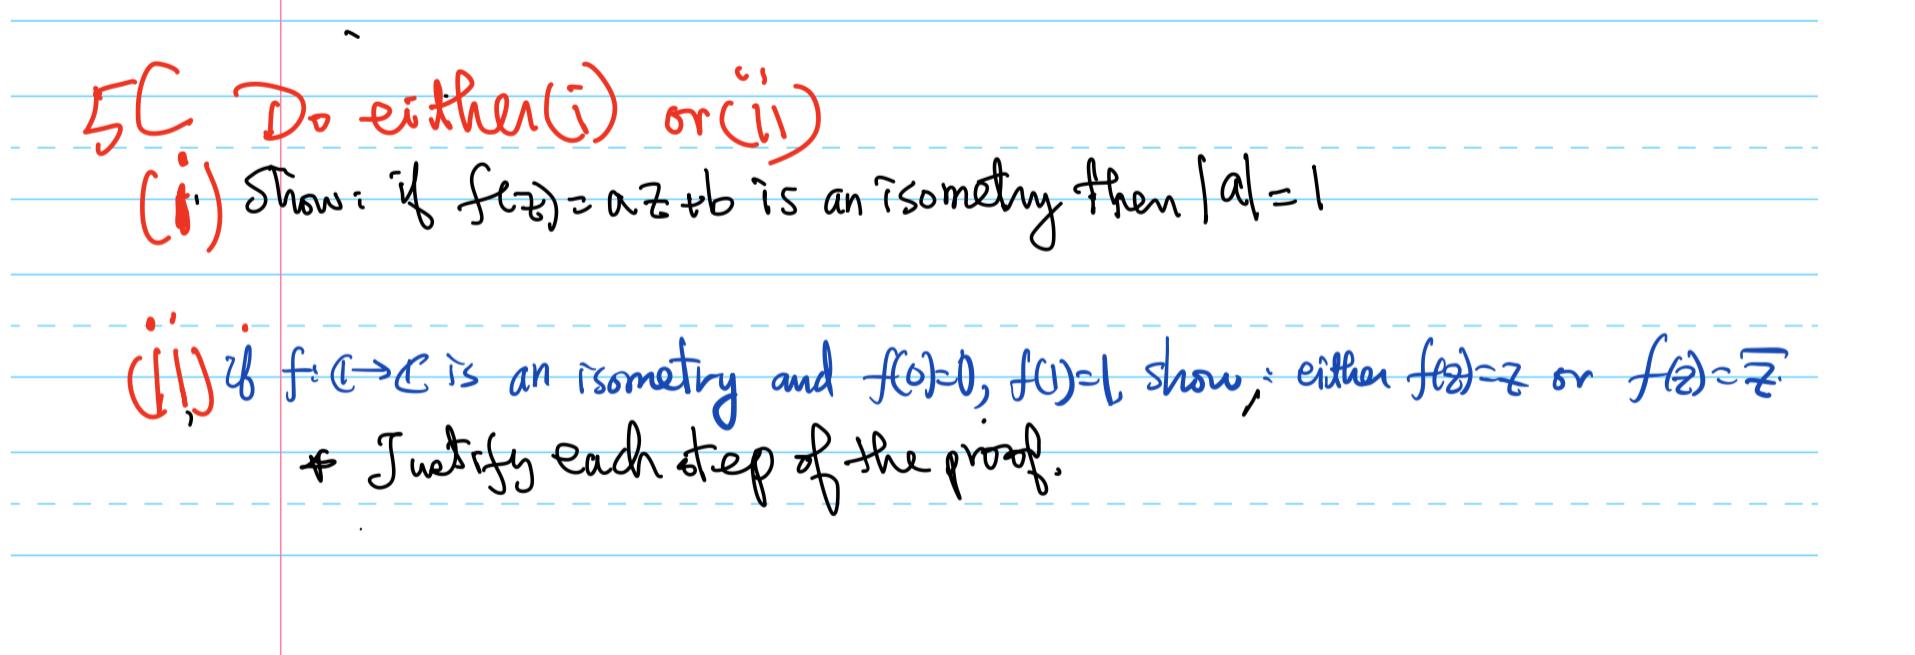 5C Do either (i) or (ii)
(i) Show: if f(z) = az+b is an isometry then |a| = 1
(ii) if f: ℂ→ℂ is an isometry and f(0)=0, f(1)=1, show: either f(z)=z or f(z)=z̅.
* Justify each step of the proof.